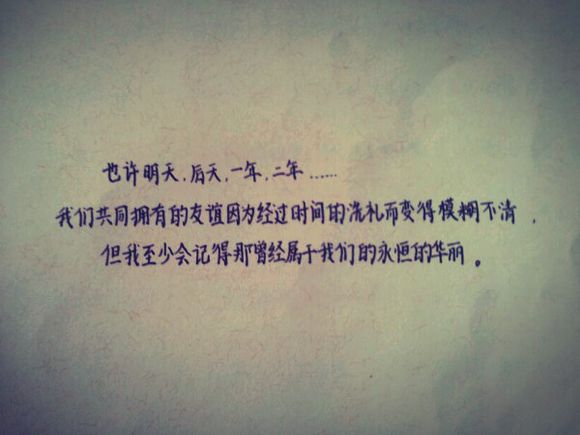 也许明天，后天，一年，二年……
我们共同拥有的友谊因为经过时间的洗礼而变得模糊不清，
但我至少会记得那曾经属于我们的永恒的华丽。